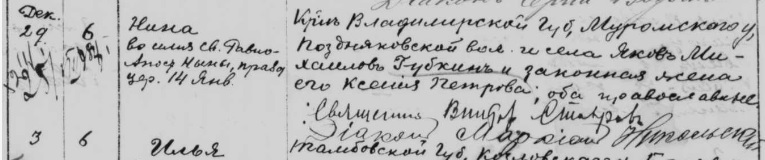 Дек.
29 6 Нина
во имя св. Равно-
Апост. Нины, празд.
цер. 14 Янв.
Кр-н Владимирской Губ, Муромского у,
Поздняковской вол. и села Яковъ Ми-
хаиловъ Губкинъ и законная жена
его Ксения Петрова; оба православные.
Священникъ Виктор
Діакон Никольский
3 6 Илья
Тамбовской Губ, Козловского